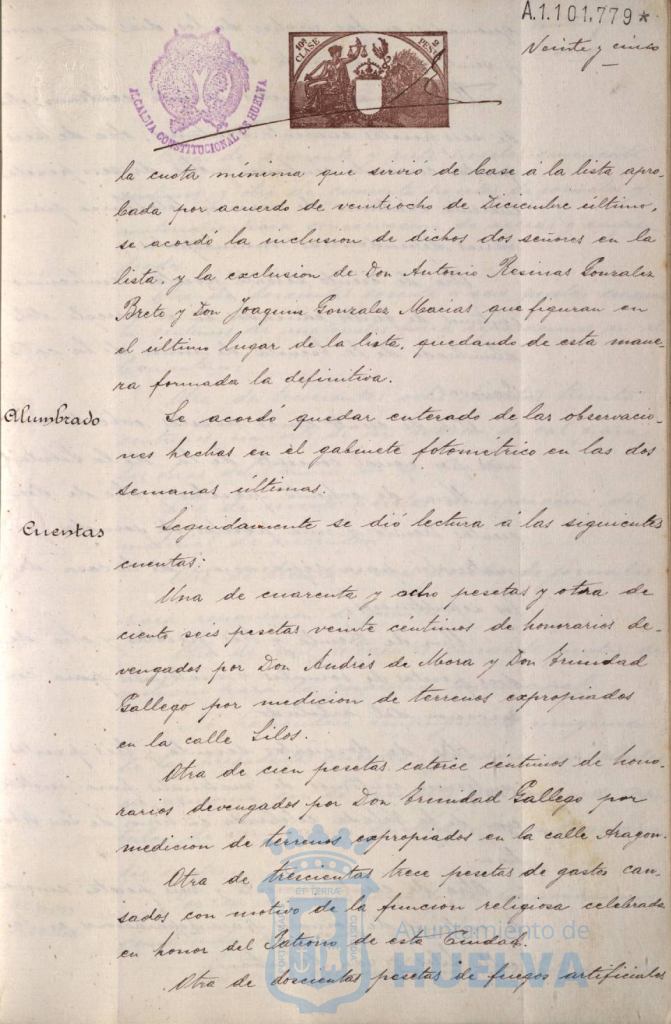 A.1.101,779*
Veinte y cinco
10ª CLASE
2 PESᵗˢ
ALCALDIA CONSTITUCIONAL DE HUELVA
la cuota mínima que sirvió de base á la lista apro-
bada por acuerdo de veintiocho de Diciembre último,
se acordó la inclusion de dichos dos señores en la
lista, y la exclusion de Don Antonio Resinas Gonzalez
Breto y Don Joaquin Gonzalez Macias que figuran en
el último lugar de la lista, quedando de esta mane-
ra formada la definitiva.
Alumbrado
Se acordó quedar enterado de las observacio-
nes hechas en el gabinete fotométrico en las dos
semanas últimas.
Cuentas
Seguidamente se dió lectura á las siguientes
cuentas:
Una de cuarenta y ocho pesetas y otra de
ciento seis pesetas veinte céntimos de honorarios de-
vengados por Don Andrés de Mora y Don Trinidad
Gallego por medicion de terrenos expropiados
en la calle Silos.
Otra de cien pesetas catorce céntimos de hono-
rarios devengados por Don Trinidad Gallego por
medicion de terrenos expropiados en la calle Aragon.
Otra de trescientas trece pesetas de gastos cau-
sados con motivo de la funcion religiosa celebrada
en honor del Patrono de esta Ciudad.
Otra de doscientas pesetas de fuegos artificiales
ET TERRÆ
Ayuntamiento de
HUELVA